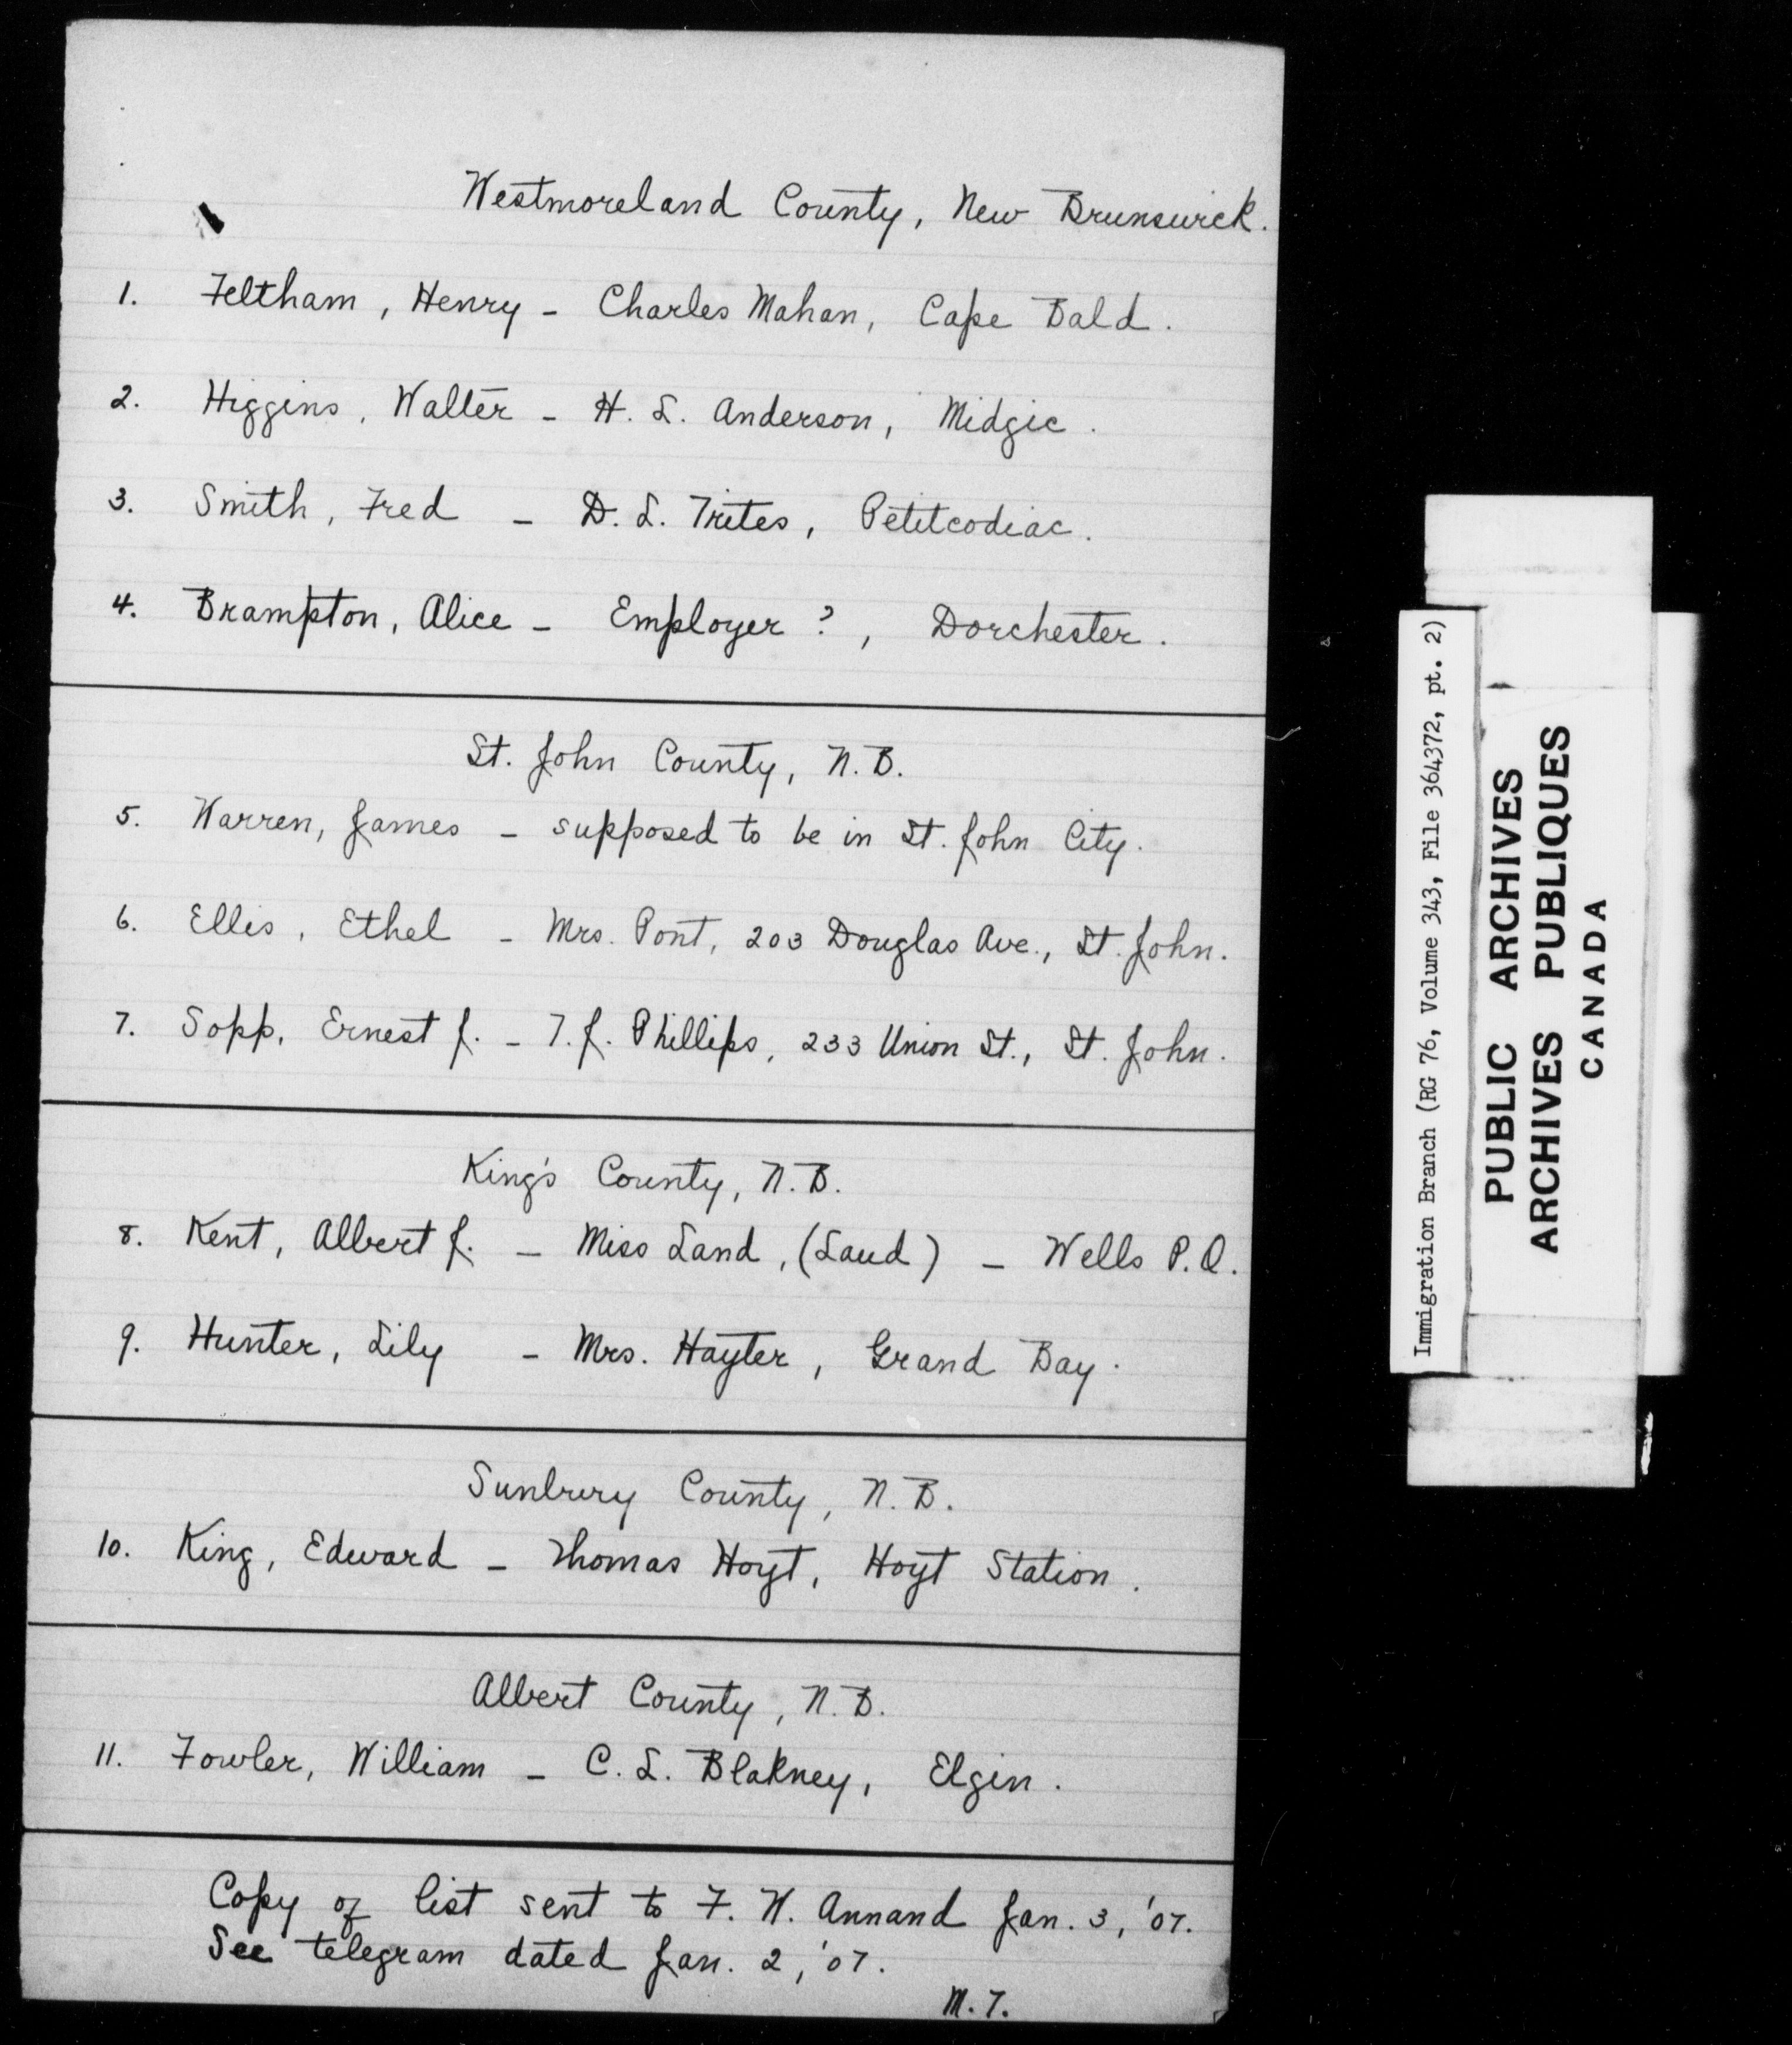 Westmoreland County, New Brunswick.
1. Feltham, Henry - Charles Mahan, Cape Bald.
2. Higgins, Walter - H. L. Anderson, Midgic.
3. Smith, Fred - D. L. Trites, Petitcodiac.
4. Brampton, Alice - Employer ?, Dorchester.
St. John County, N.B.
5. Warren, James - supposed to be in St. John City.
6. Ellis, Ethel - Mrs. Pont, 203 Douglas Ave., St. John.
7. Sopp, Ernest J. - T. J. Phillips, 233 Union St., St. John.
King's County, N.B.
8. Kent, Albert J. - Miss Land, (Laud) - Wells P.O.
9. Hunter, Lily - Mrs. Hayter, Grand Bay.
Sunbury County, N.B.
10. King, Edward - Thomas Hoyt, Hoyt Station.
Albert County, N.B.
11. Fowler, William - C. L. Blakney, Elgin.
Copy of list sent to F. W. Annand Jan. 3, '07.
See telegram dated Jan. 2, '07.
M. T.
Immigration Branch (RG 76, Volume 343, File 364372, pt. 2)
PUBLIC ARCHIVES
ARCHIVES PUBLIQUES
CANADA